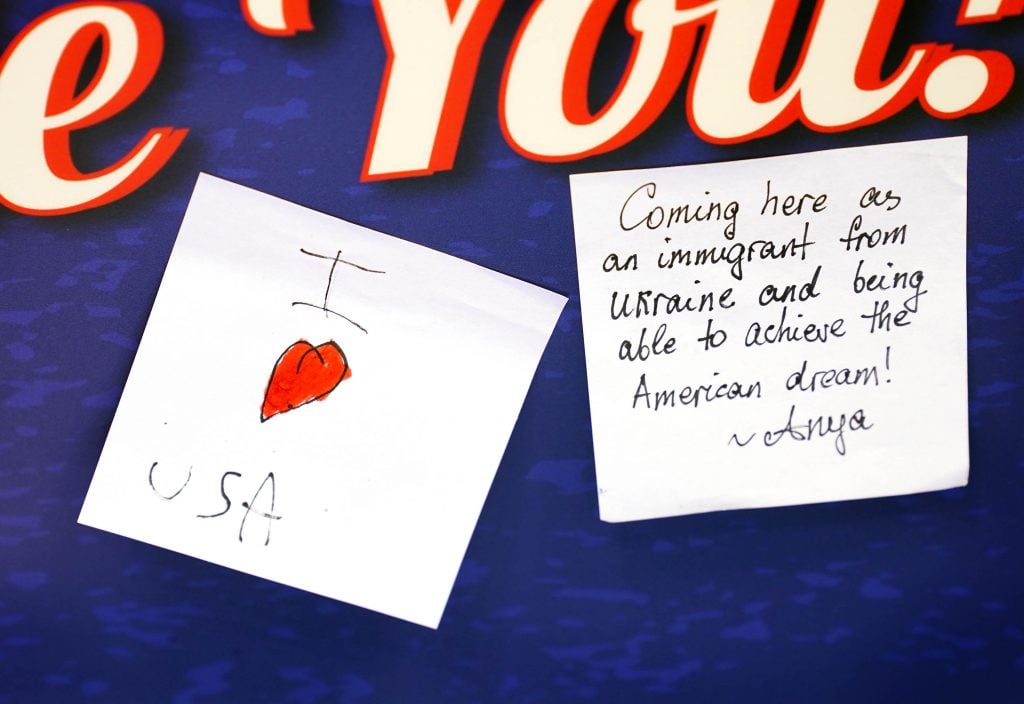 e You!
I
USA
Coming here as
an immigrant from
Ukraine and being
able to achieve the
American dream!
~Anya